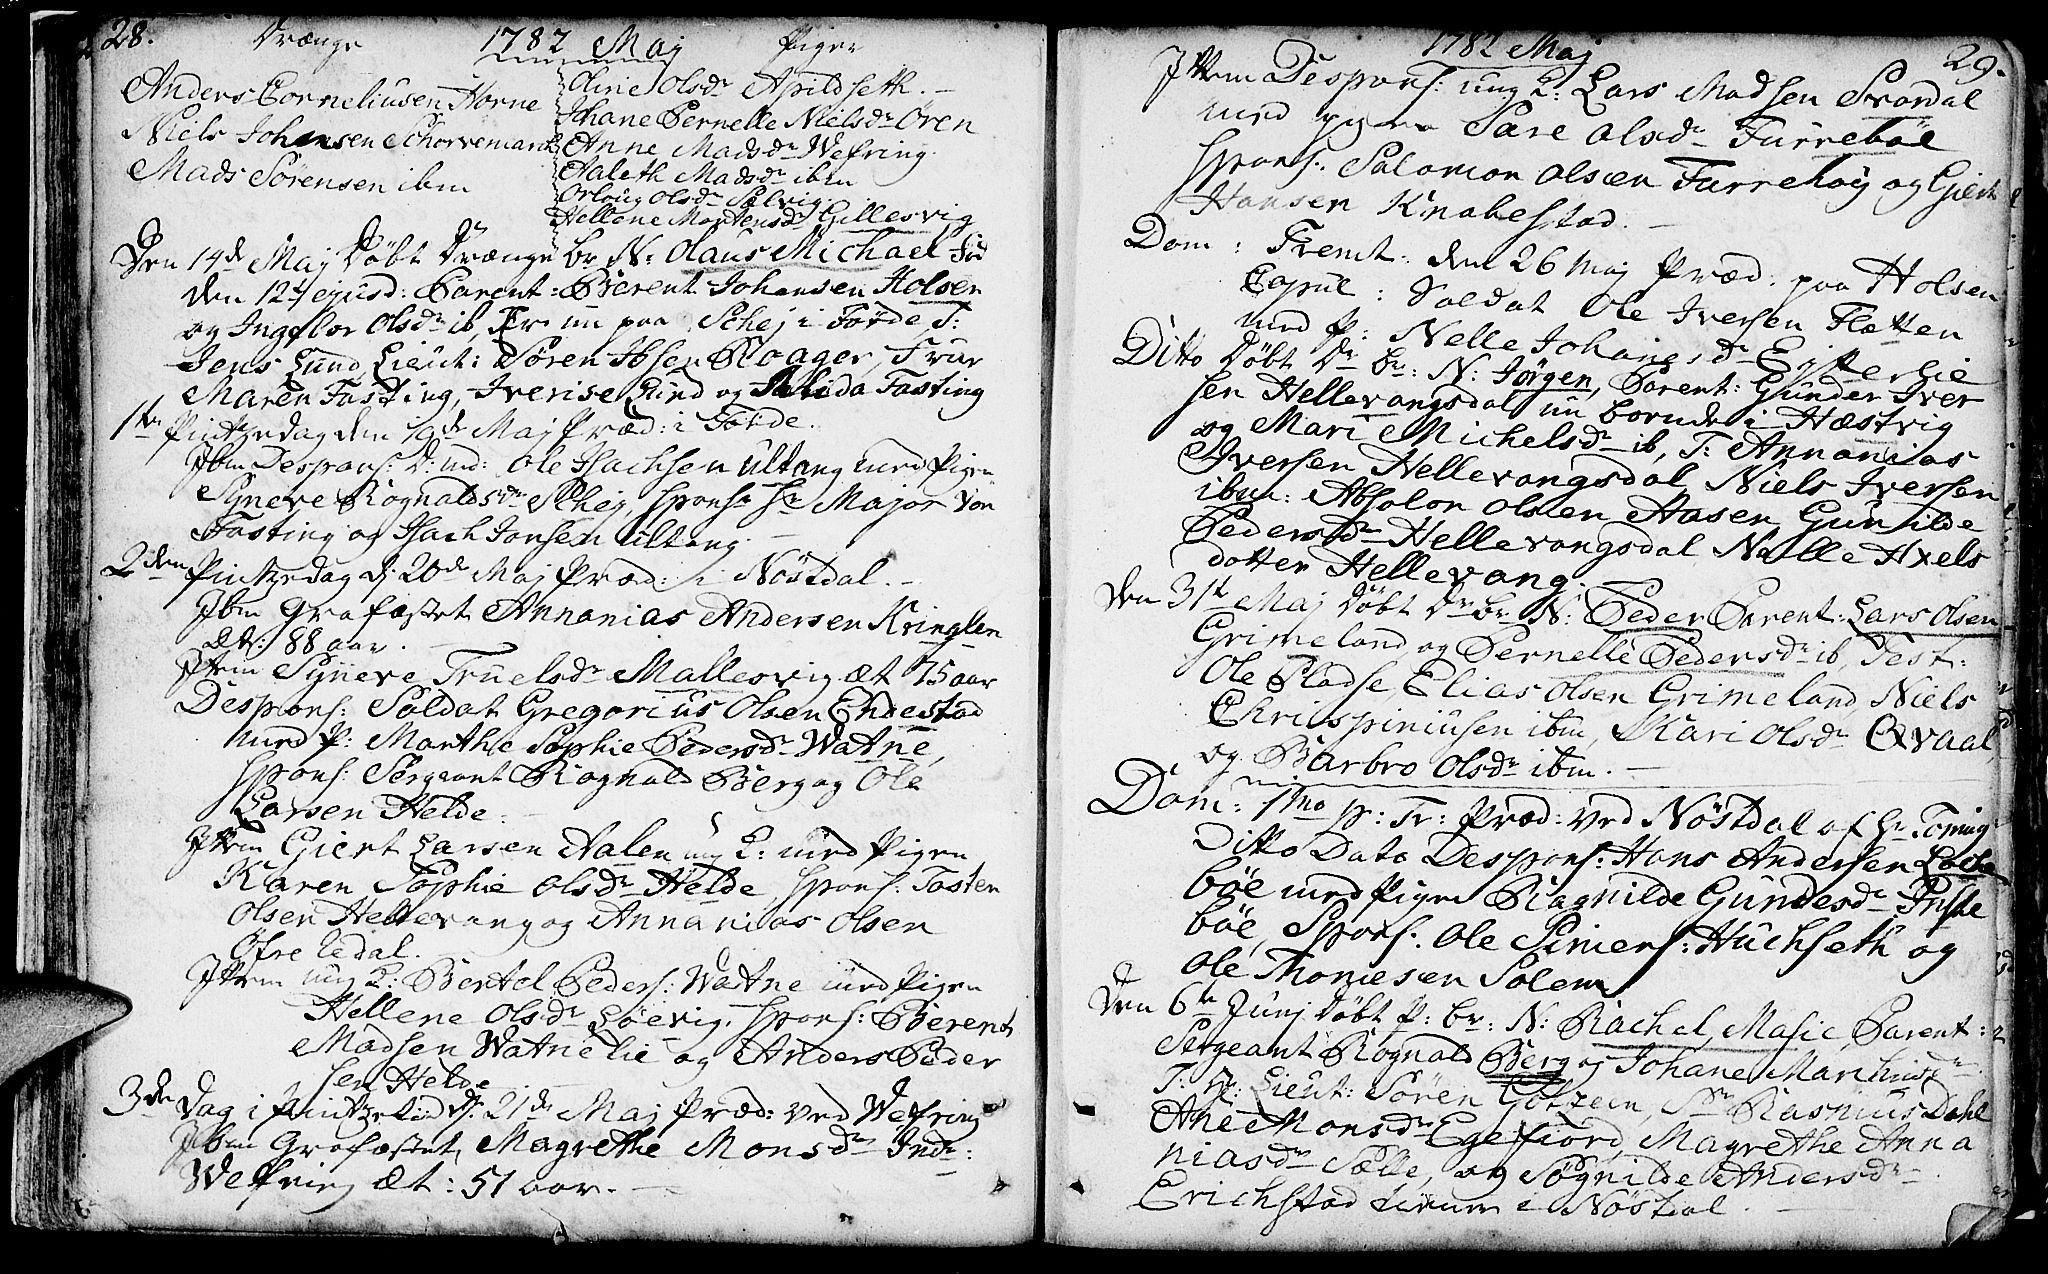 28. Drænge 1782 Maj Piger
Anders Corneliusen Horne
Niels Johansen Schorvemarch
Mads Sørensen ibm
Oline Olsdr Apildseth. –
Johane Pernelle Nielsdr Øren
Anne Madsdr Wefring
Aaleth Madsdr ibm
Orloug Olsdr Solvig
Hellene Mortensdr Gillesvig
Den 14de Maj Døbt Drænge br N: Olaus Michael Fød
den 12te ejusd: Parent: Berent Johansen Holsen
og Ingebor Olsdr ib, Er nu paa Schej i Førde T:
Jens Lund, Lieut: Søren Ibsen Roager, Frue
Maren Fasting, Iverise Lund og Fasting
1ste Pintzedag den 19de Maj Præd: i Førde.
Ibm Despons: Ole Isachsen Ultang med Pigen
Syneve Rognaldsdr Schej, spons Hr Major von
Fasting og Isach Jonsen Ultang. –
2den Pintzedag d: 20de Maj Præd: i Nøstdal. –
Ibm Grafæstet Annanias Andersen Kringlen
æt: 88 aar. –
Item Syneve Truelsdr Mallesvig æt 75 aar
Despons: Soldat Gregorius Olsen Endestad
med P: Marthe Sophie Pedersdr Watne,
spons: Sergeant Rognald Berg og Ole
Larsen Helde. –
Item Giert Larsen Aalen ung K: med Pigen
Karen Sophie Olsdr Helde, spons: Tosten
Olsen Hellevang og Annanias Olsen
Øfre Eedal.
Item ung K: Bertel Peders: Watne med Pigen
Hellene Olsdr Løevig, spons: Berent
Madsen Watnelie og Anders Peder
sen Helde
3de Dag i Pintzetid d: 21de Maj Præd: ved Wefring
Ibm Grafæstet, Magrethe Monsdr Indr:
Wefring æt: 51 aar. –
1782 Maj 29.
Item Despons: ung K: Lars Madsen Svordal
med pigen Sare Olsdr Furrebøe
spons: Salomon Olsen Furrehøj og Giert
Hansen Knabestad. –
Dom: Trinit: den 26 Maj Præd: paa Holsen
Copul: Soldat Ole Iversen Flætten
med P: Nelle Johanesdr Egjtterlie
Ditto Døbt Dr br: N: Jørgen, Parent: Gunder Iver
sen Hellevangsdal nu boende i Hæstvig
og Mari Michelsdr ib, T: Annanias
Iversen Hellevangsdal Niels Iversen
ibm: Absolon Olsen Aasen, Gunilde
Pedersdr Hellevangsdal Nelle Axels
dotter Hellevang.
Den 31te Maj Døbt Dr br N: Peder Parent: Lars Olsen
Grimeland og Pernelle Pedersdr ib, Test:
Ole Pladse, Elias Olsen Grimeland, Niels
Chrispiniusen ibm, Kari Olsdr Qvaal,
og Barbro Olsdr ibm. –
Dom: 1mo p: Tr: Præd: ved Nøstdal af Hr
Ditto Dato Despons: Hans Andersen
bøe med Pigen Ragnilde Gundesdr Inste
bøe, Spons: Ole Simens: Huchseth og
Ole Thomesen Solem
Den 6te Junj Døbt P: br: N: Rachel Masie, Parent:
Sergeant Rognald Berg og Johane
T: Hr: Lieut: Søren Sr Rasmus Dahl
Ane Monsdr Egefiord, Magrethe Anna
niasdr Sælle, og Søgnilde Andersdr
Erichstad i Nøstdal. –